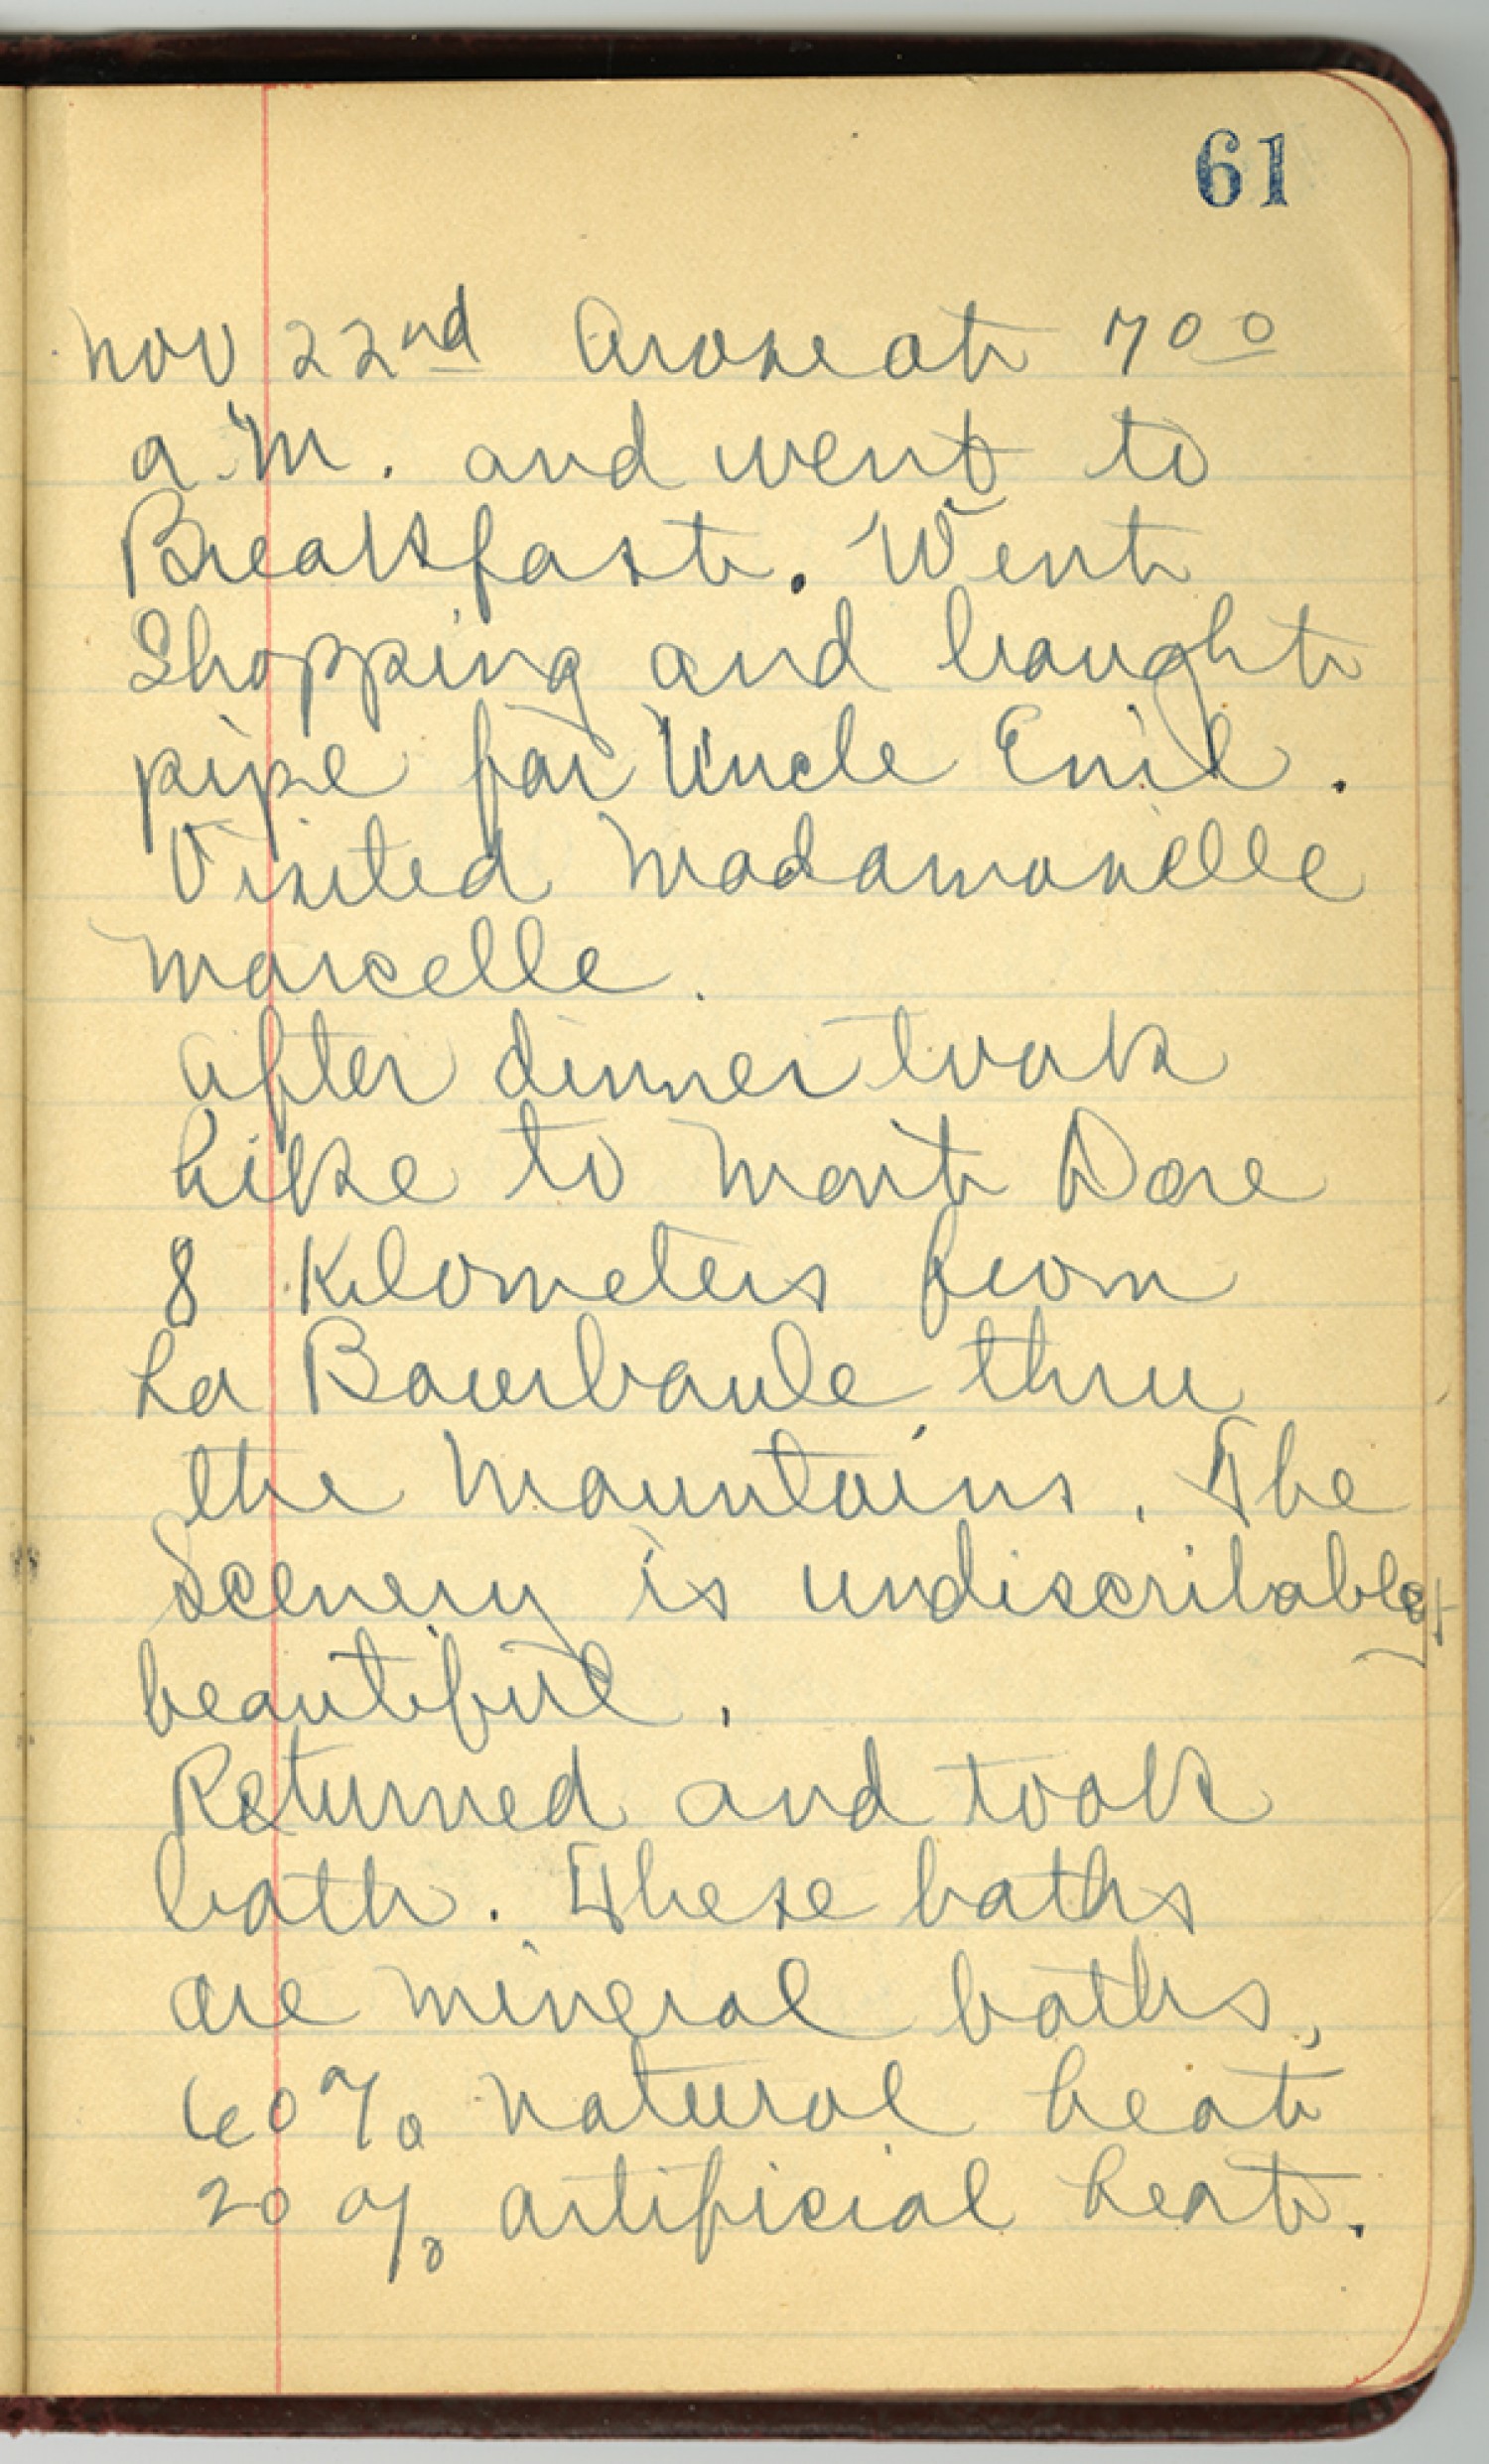 61
Nov 22nd Arose at 7 00
a.m. and went to
Breakfast. Went
Shopping and bought
pipe for Uncle Emil.
Visited Madamoselle
Marcelle.
after dinner took
hike to Mont Dore
8 Kilometers from
La Bourboule thru
the Mountains. The
Scenery is undiscribable
beautiful.
Returned and took
bath. These baths
are mineral baths,
60% natural heat
20% artificial heat.